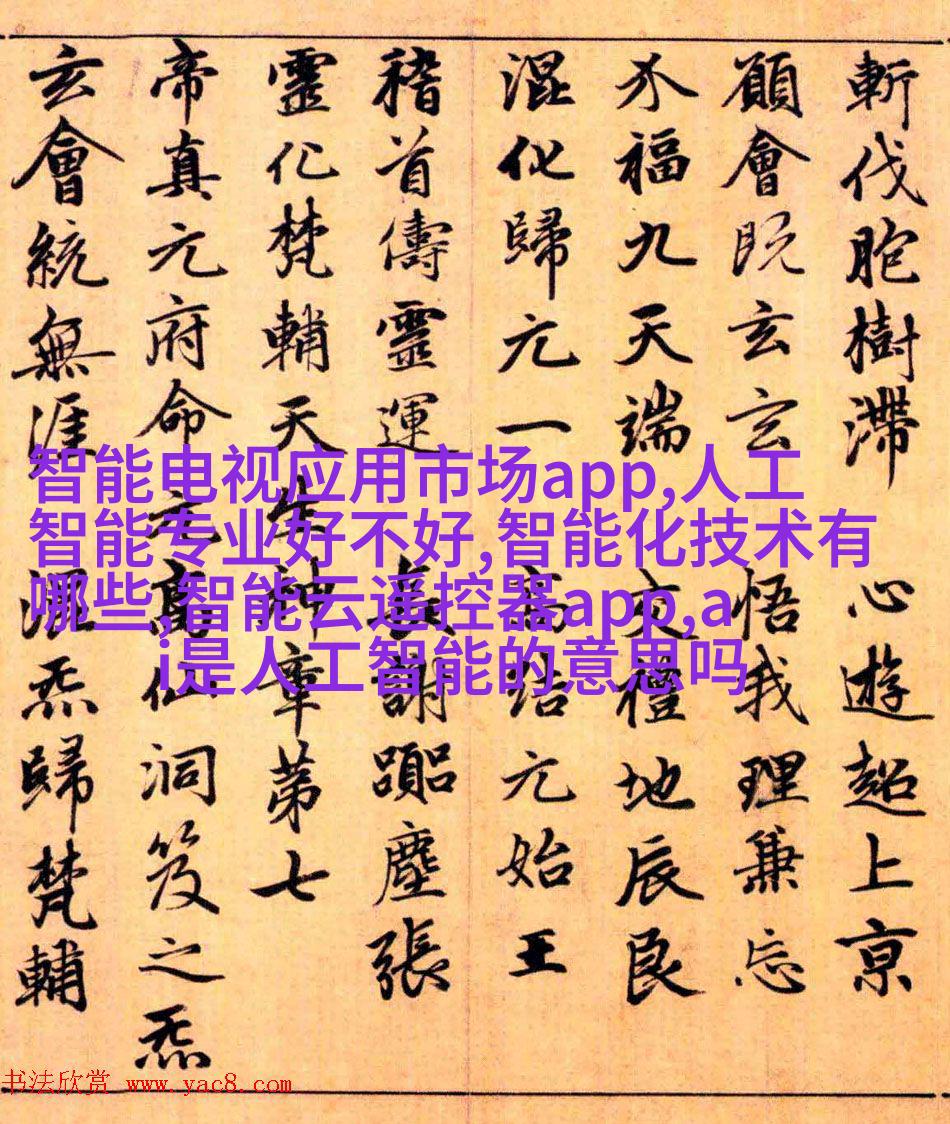 斬伐胞樹滯　心遊超上京
願會既玄玄　悟我理兼忘
介福九天端　交禮地辰良
混化歸元一　高結元始王
稽首儔靈運　長謝躡塵張
靈化梵輔天生神章第七
帝真元府命元高仙洞笈之炁
玄會統無涯　混炁歸梵輔
智能电视应用市场app,人工
智能专业好不好,智能化技术有
哪些,智能云遥控器app,a
i是人工智能的意思吗
书法欣赏 www.yac8.com